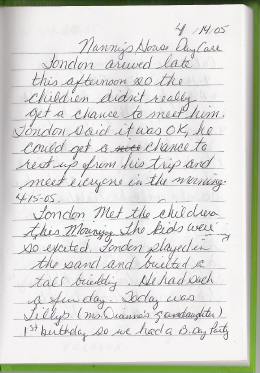 4/14-05
Nanny's House DayCare
London arived late
this afternoon so the
children didn't really
get a chance to meet him.
London said it was OK, he
could get a chance to
rest up from his trip and
meet everyone in the morning.
4-15-05.
London Met the children
this Morning. The kids were
so excited. London played in
the sand and builted a
tall building. He had such
a fun day. Today was
Lilly's (Ms. Dianna's grandaughter)
1st birthday so we had a B.Day Party